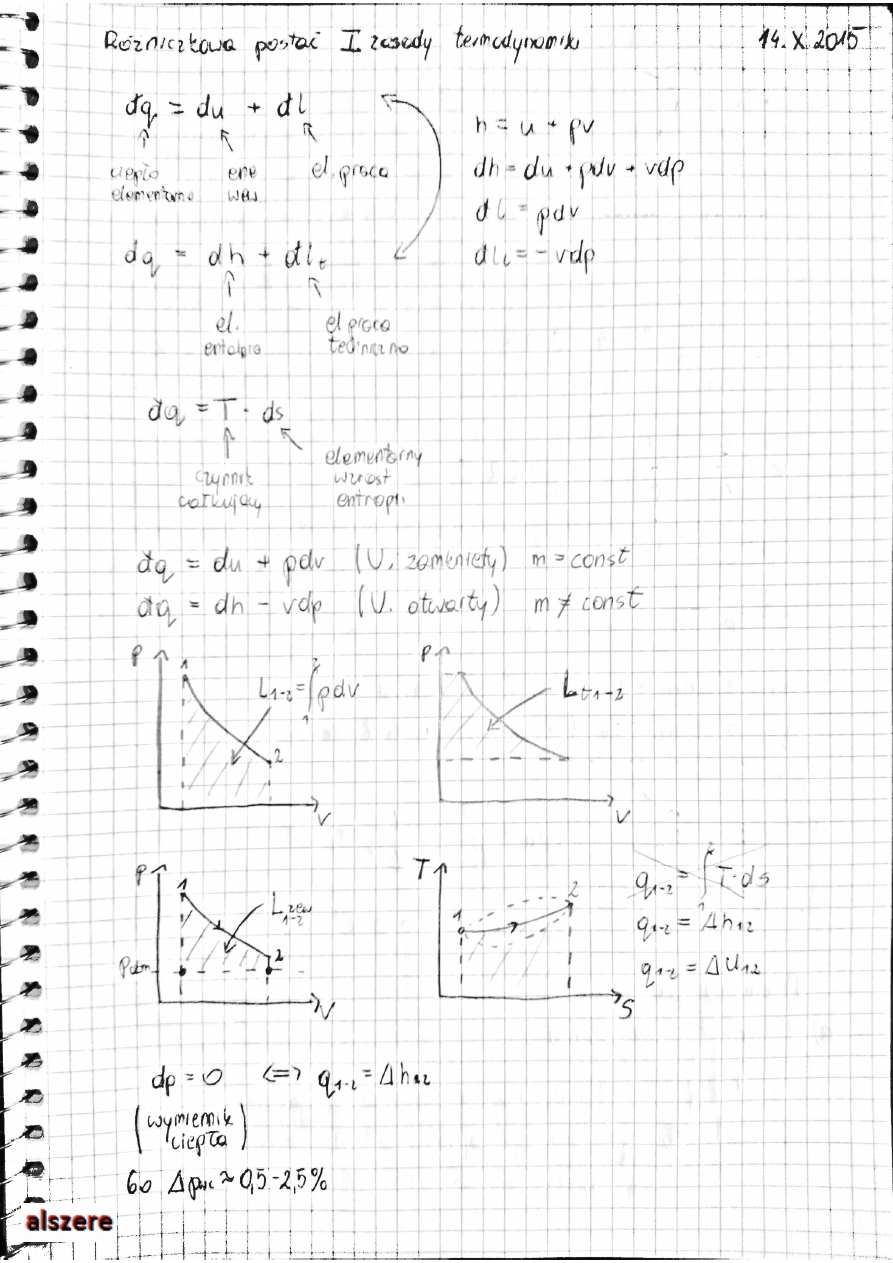 Różniczkowa postać I zasady termodynamiki 14.X.2015
đq = du + đl
ciepło elementarne
ene wew
el. praca
h = u + pv
dh = du + pdv + vdp
đl = pdv
đlt = - vdp
đq = dh + đlt
el. entalpia
el praca techniczna
đq = T · ds
czynnik całkujący
elementarny wzrost entropii
đq = du + pdv (U. zamknięty) m = const
đq = dh - vdp (U. otwarty) m ≠ const
P
1
L1-2 = ∫ pdv
2
1
2
V
P
Lt1-2
V
P
1
Lzew 1-2
2
Patm
V
T
1
2
S
q1-2 = ∫ T·ds
2
1
q1-2 = Δh12
q1-2 = Δu12
dp = 0 <=> q1-2 = Δh12
(wymiennik ciepła)
bo Δpwc ≈ 0,5-2,5%
alszere